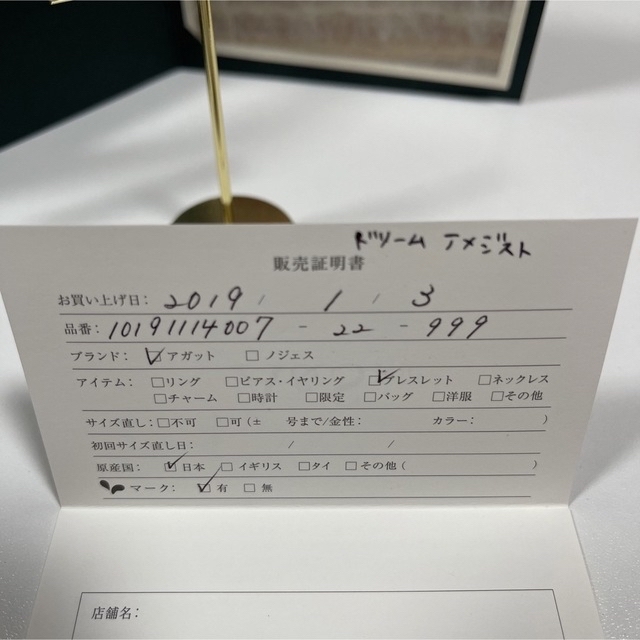 ドリーム アメジスト
販売証明書
お買い上げ日: 2019 / 1 / 3
品番: 10191114007 - 22 - 999
ブランド: ☑アガット □ノジェス
アイテム: □リング □ピアス・イヤリング ☑ブレスレット □ネックレス
□チャーム □時計 □限定 □バッグ □洋服 □その他
サイズ直し: □不可 □可(± 号まで/金性: カラー: )
初回サイズ直し日: / /
原産国: ☑日本 □イギリス □タイ □その他( )
マーク: ☑有 □無
店舗名: